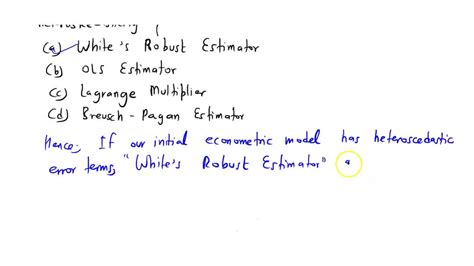 (a) White's Robust Estimator
(b) OLS Estimator
(c) Lagrange Multiplier
(d) Breusch-Pagan Estimator
Hence, If our initial econometric model has heteroscedastic
error terms, "White's Robust Estimator" a